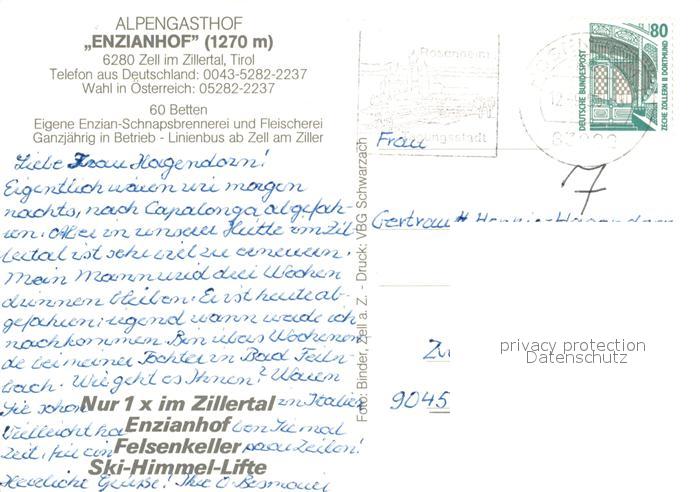 ALPENGASTHOF
„ENZIANHOF” (1270 m)
6280 Zell im Zillertal, Tirol
Telefon aus Deutschland: 0043-5282-2237
Wahl in Österreich: 05282-2237
60 Betten
Eigene Enzian-Schnapsbrennerei und Fleischerei
Ganzjährig in Betrieb - Linienbus ab Zell am Ziller
Liebe Frau Hagendorn!
Eigentlich wären wir morgen
nachts, nach Capalonga abgefah-
ren. Aber in unserer Hütte im Zil-
lertal ist sehr viel zu erneuern.
Mein Mann wird drei Wochen
drinnen bleiben. Er ist heute ab-
gefahren; irgend wann werde ich
nachkommen. Bin übers Wochenen
de bei meiner Tochter in Bad Feiln-
bach. Wie geht es Ihnen? Waren
Sie schon in Italien
Vielleicht
Zeit, für ein paar Zeilen!
Herzliche Grüße! Ihre
Nur 1 x im Zillertal
Enzianhof
Felsenkeller
Ski-Himmel-Lifte
Foto: Binder, Zell a. Z. - Druck: VBG Schwarzach
Rosenheim
80
DEUTSCHE BUNDESPOST
ZECHE ZOLLERN II DORTMUND
Frau
7
Gertraut
9045
privacy protection
Datenschutz